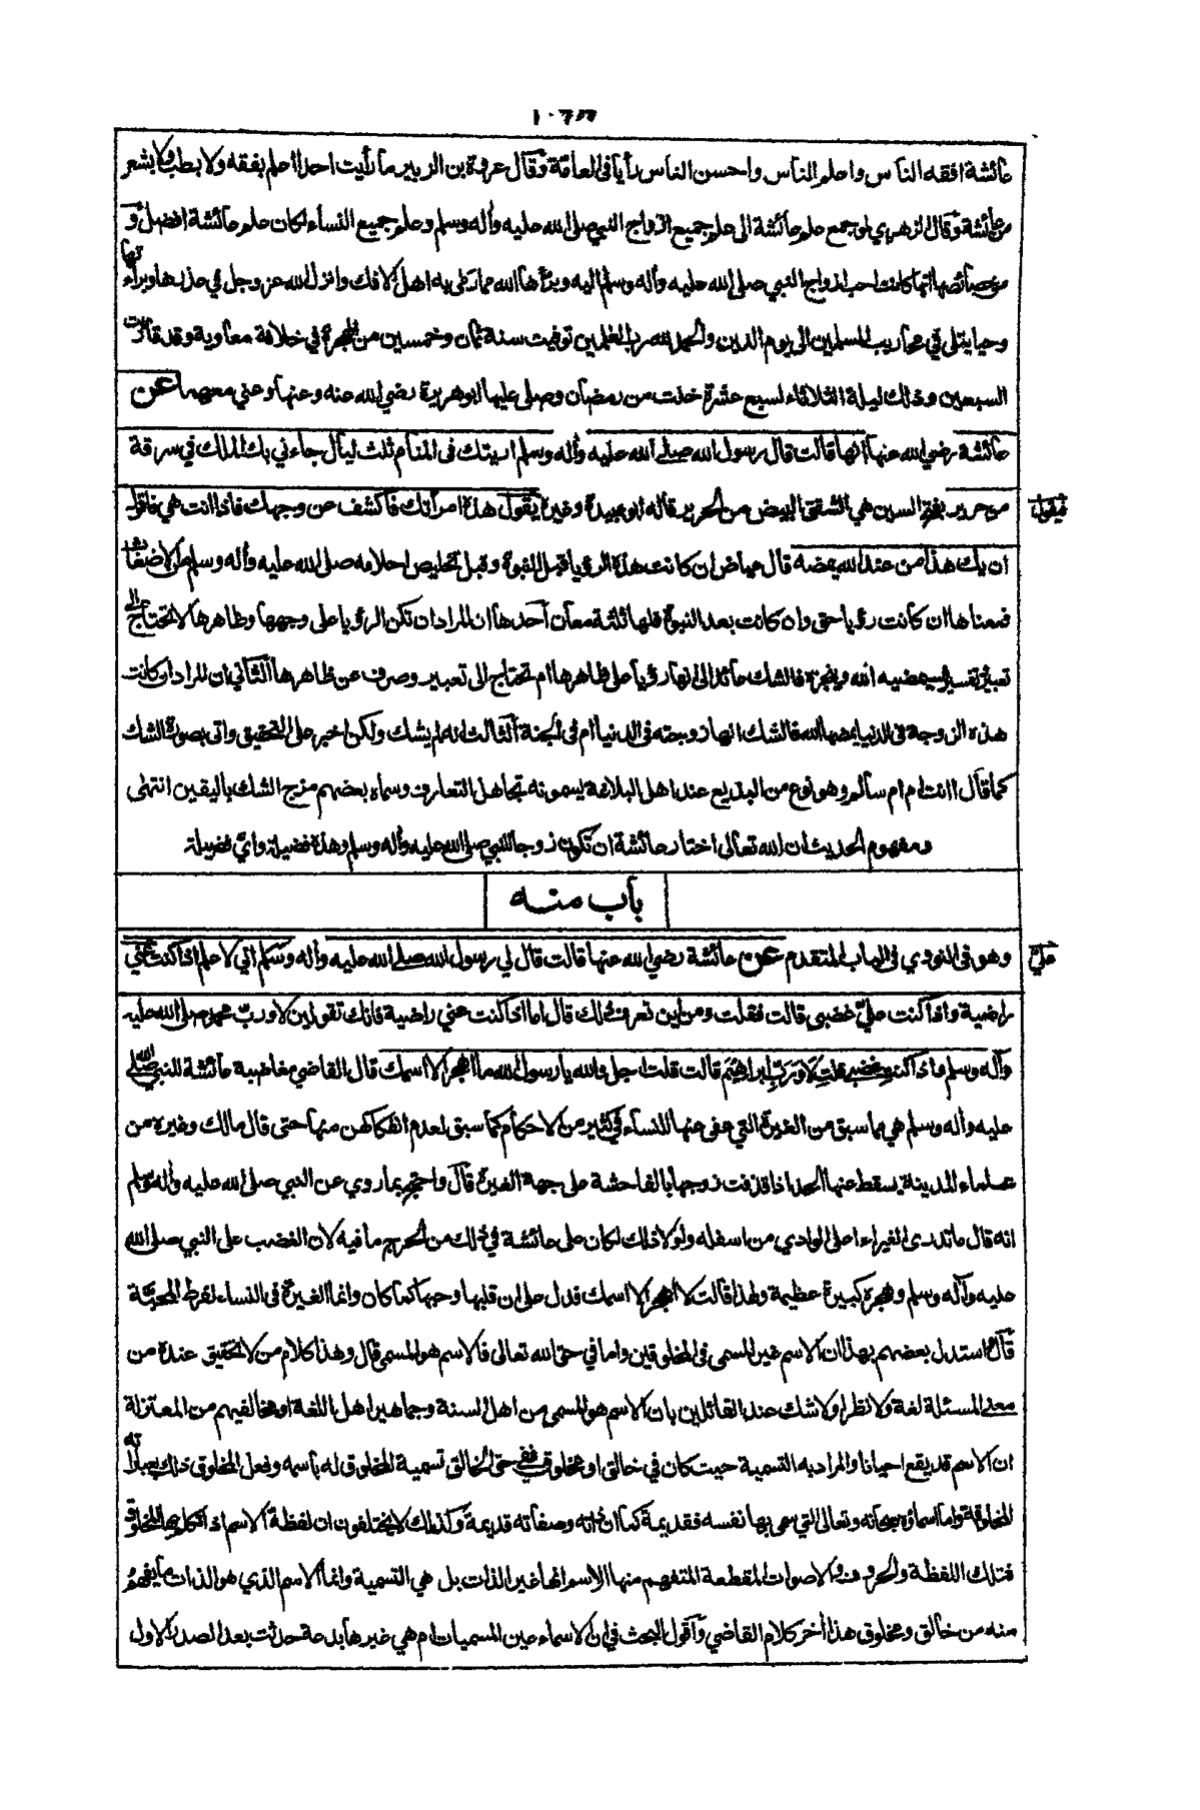 عائشة افقه الناس واعلم الناس واحسن الناس رأيا في العامة وقال عروة بن الزبير ما رأيت احدا اعلم بفقه ولا بطب ولا بشعر
من عائشة وقال الزهري لو جمع علم عائشة الى علم جميع ازواج النبي صلى الله عليه وأله وسلم وعلم جميع النساء لكان علم عائشة افضل و
من خصائصها انها كانت احب ازواج النبي صلى الله عليه وأله وسلم اليه وبرأها الله مما رماها به اهل الافك وانزل الله عز وجل في عذرها وبراءتها
وحيا يتلى في محاريب المسلمين الى يوم الدين والحمد لله رب العلمين توفيت سنة ثمان وخمسين من الهجرة في خلافة معاوية وقد قاربت
السبعين وذلك ليلة الثلاثاء لسبع عشرة خلت من رمضان وصلى عليها ابو هريرة رضي الله عنه وعنها وعني معهما عن
عائشة رضي الله عنها انها قالت قال رسول الله صلى الله عليه وأله وسلم اريتك في المنام ثلث ليال جاءني بك الملك في سرقة
من حرير بفتح السين هي الشقق البيض من الحرير قاله ابو عبيدة وغيره يقول هذه امرأتك فاكشف عن وجهك فاذا انت هي فاقول
فيقول
ان يك هذا من عند الله يمضه قال عياض ان كانت هذه الرؤيا قبل النبوة وقبل تخليص احلامه صلى الله عليه وأله وسلم من الاضغاث
فمعناها ان كانت رؤيا حق وان كانت بعد النبوة فلها ثلثة معان أحدها ان المراد ان تكن الرؤيا على وجهها وظاهرها لا تحتاج الى
تعبير وتفسير فسيمضيه الله وينجزه فالشك عائد الى انها رؤيا على ظاهرها ام تحتاج الى تعبير وصرف عن ظاهرها الثاني ان المراد ان كانت
هذه الزوجة في الدنيا يمضها الله فالشك انها زوجته في الدنيا ام في الجنة الثالث انه لم يشك ولكن اخبر على التحقيق واتى بصورة الشك
كما قال اانت ام ام سالم وهو نوع من البديع عند اهل البلاغة يسمونه تجاهل التعارف وسماه بعضهم مزج الشك باليقين انتهى
ومفهوم الحديث ان الله تعالى اختار عائشة ان تكون زوجا للنبي صلى الله عليه وأله وسلم وهذه فضيلة واي فضيلة
باب منه
وهو في النووي في الباب المتقدم عن عائشة رضي الله عنها قالت قال لي رسول الله صلى الله عليه وأله وسلم اني لاعلم اذا كنت عني
راضية واذا كنت علي غضبى قالت فقلت ومن اين تعرف ذلك قال اما اذا كنت عني راضية فانك تقولين لا ورب محمد صلى الله عليه
وأله وسلم واذا كنت غضبى قلت لا ورب ابراهيم قالت قلت اجل والله يا رسول الله ما اهجر الا اسمك قال القاضي مغاضبة عائشة للنبي صلى الله
عليه وأله وسلم هي مما سبق من الغيرة التي عفى عنها للنساء في كثير من الاحكام كما سبق لعدم انفكاكهن منها حتى قال مالك وغيره من
علماء المدينة يسقط عنها الحد اذا قذفت زوجها بالفاحشة على جهة الغيرة قال واحتج بما روي عن النبي صلى الله عليه وأله وسلم
انه قال ما تدري الغيراء اعلى الوادي من اسفله ولولا ذلك لكان على عائشة في ذلك من الحرج ما فيه لان الغضب على النبي صلى الله
عليه وأله وسلم وهجره كبيرة عظيمة ولهذا قالت لا اهجر الا اسمك فدل على ان قلبها وحبها كما كان وانما الغيرة في النساء لفرط المحبة
قال واستدل بعضهم بهذا ان الاسم غير المسمى في المخلوقين واما في حق الله تعالى فالاسم هو المسمى قال وهذا كلام من لا تحقيق عنده من
معنى المسئلة لغة ولا نظرا ولا شك عند القائلين بان الاسم هو المسمى من اهل السنة وجماهير اهل اللغة او مخالفيهم من المعتزلة
ان الاسم قد يقع احيانا والمراد به التسمية حيث كان في خالق او مخلوق ففي حق الخالق تسمية المخلوق له باسمه وفعل المخلوق ذلك بعباراته
المخلوقة واما اسماؤه سبحانه وتعالى التي سمى بها نفسه فقديمة كما ان ذاته وصفاته قديمة وكذلك لا يختلفون ان لفظة الاسم اذا تكلم بها المخلوق
فتلك اللفظة والحروف والاصوات المقطعة المتفهم منها الاسم انها غير الذات بل هي التسمية وانما الاسم الذي هو الذات ما يفهم
منه من خالق ومخلوق هذا أخر كلام القاضي وأقول البحث في ان الاسماء عين المسميات ام هي غيرها بدعة حدثت بعد الصدر الاول